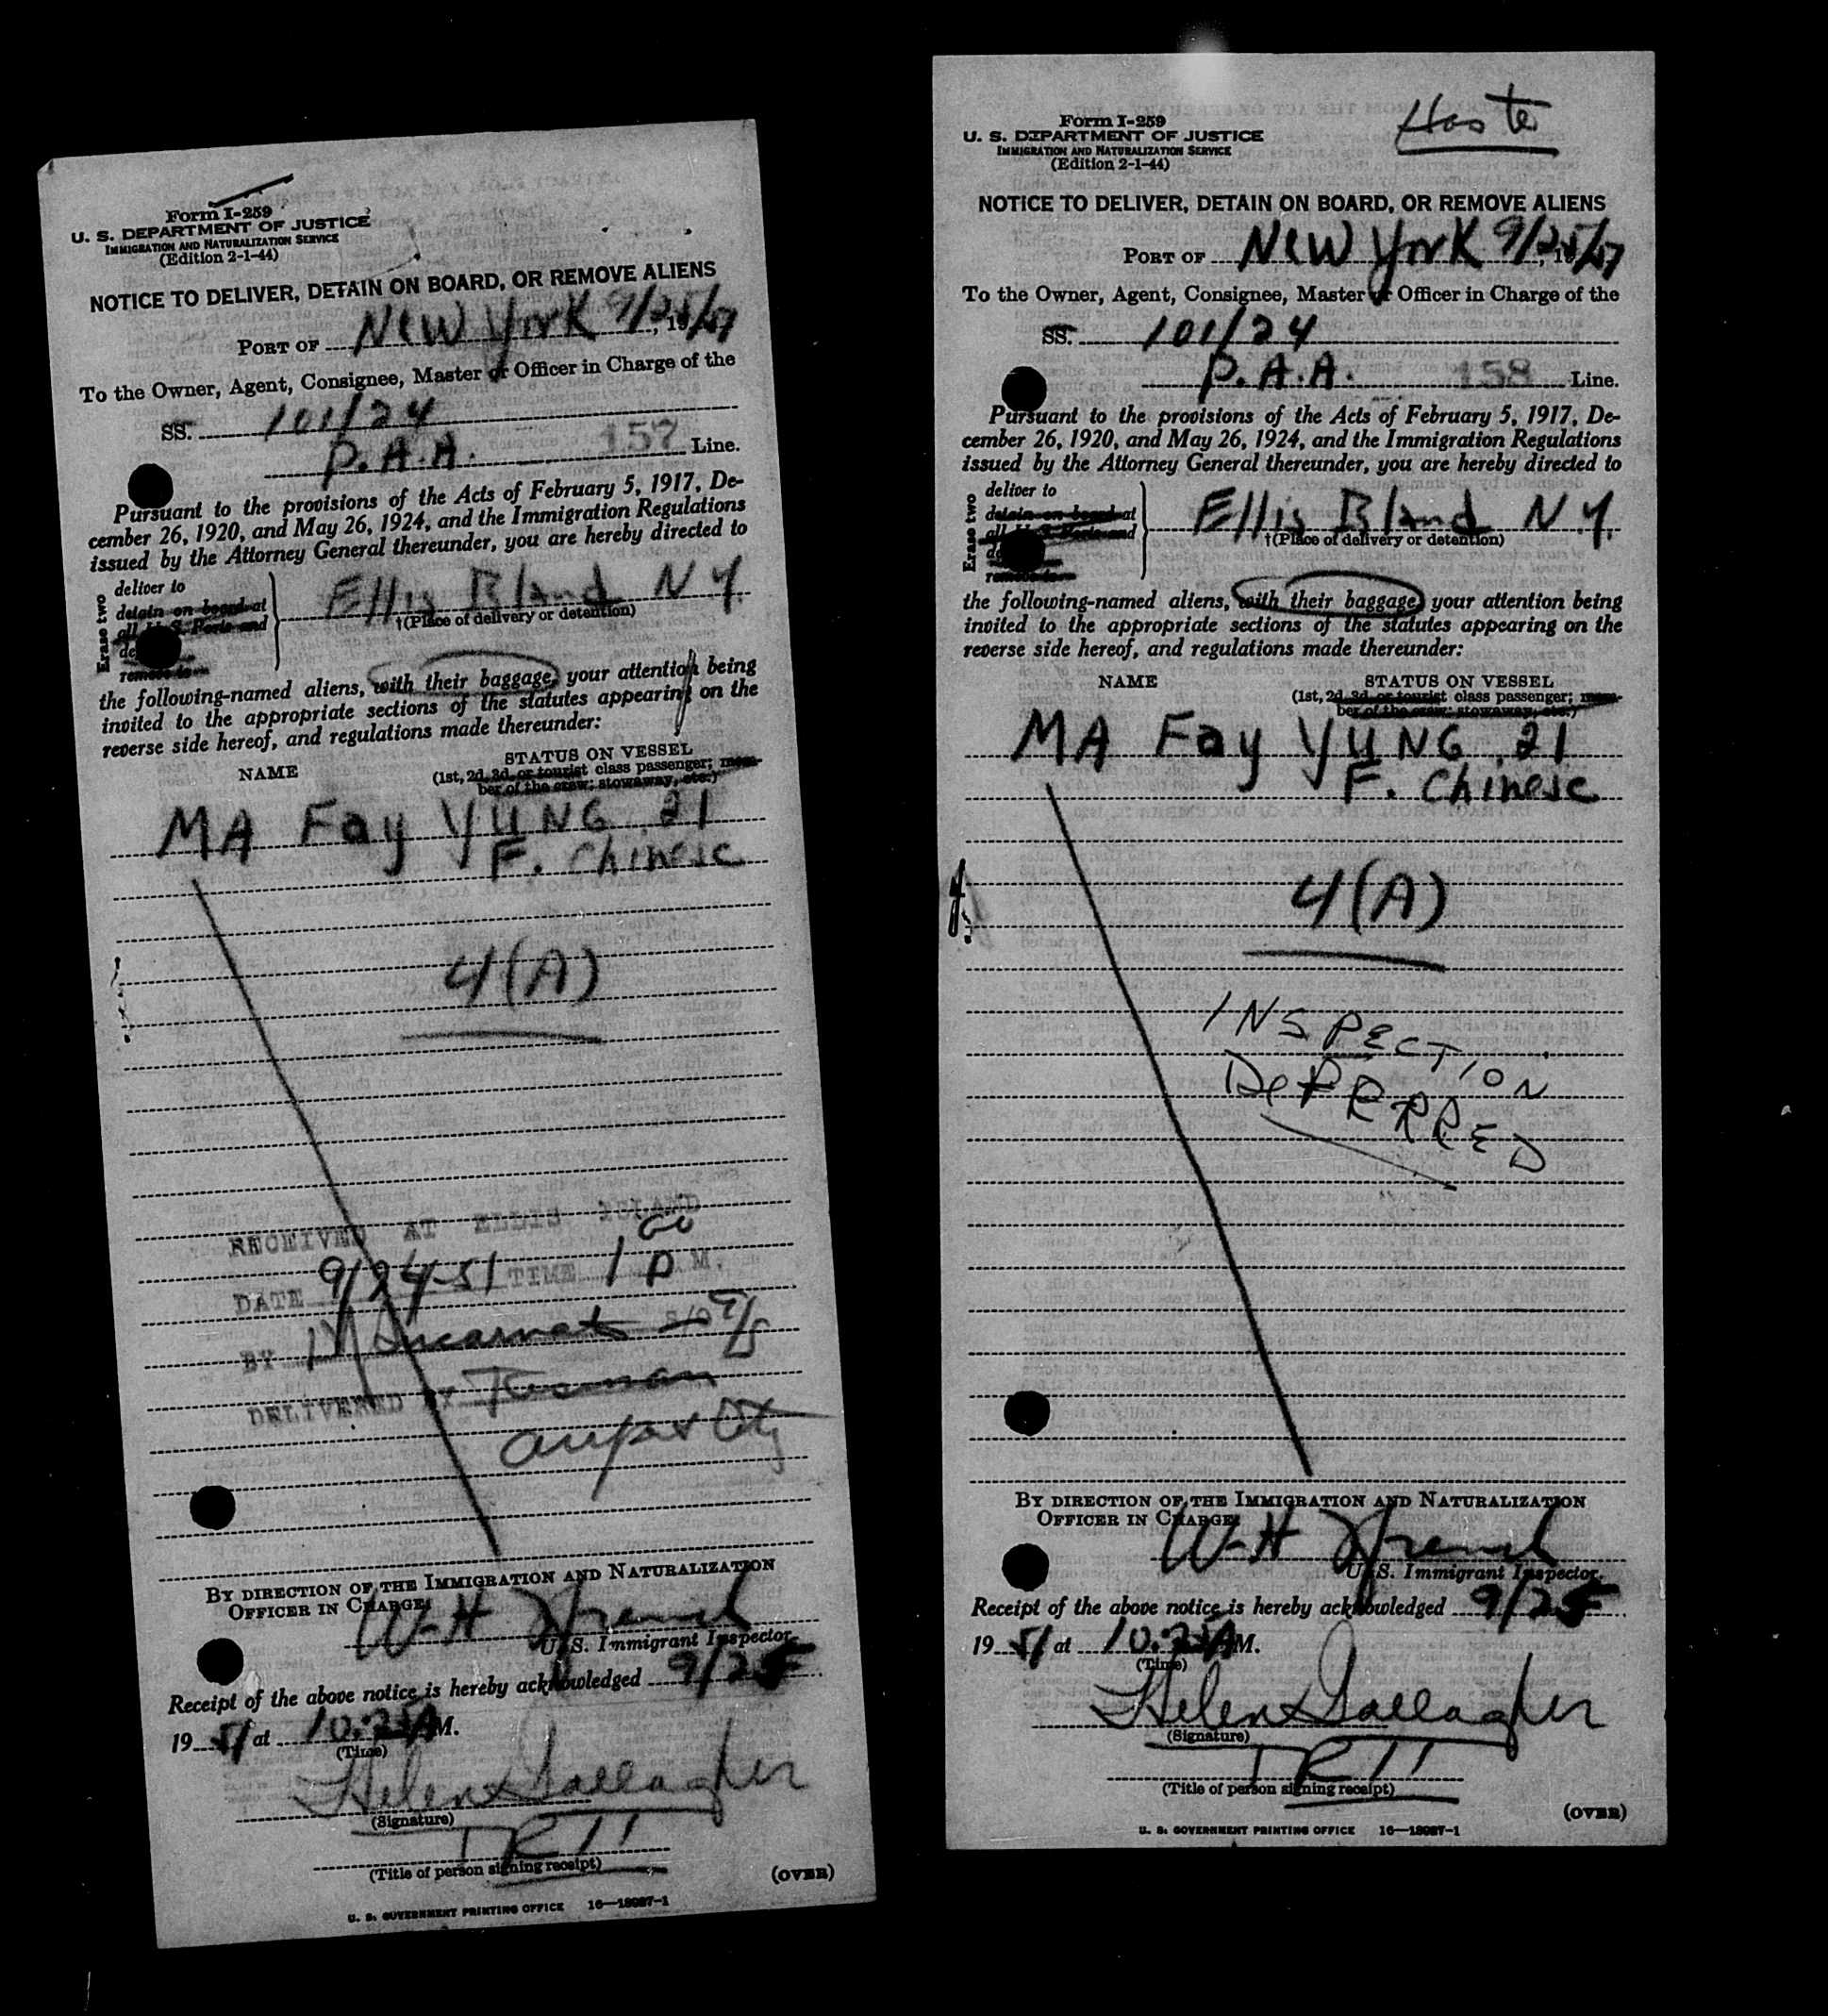 Form I-259
U. S. DEPARTMENT OF JUSTICE
IMMIGRATION AND NATURALIZATION SERVICE
(Edition 2-1-44)
NOTICE TO DELIVER, DETAIN ON BOARD, OR REMOVE ALIENS
PORT OF New York 9/25/
To the Owner, Agent, Consignee, Master or Officer in Charge of the
SS. 101/24
P.A.A. 157 Line.
Pursuant to the provisions of the Acts of February 5, 1917, De-
cember 26, 1920, and May 26, 1924, and the Immigration Regulations
issued by the Attorney General thereunder, you are hereby directed to
Erase two
deliver to
detain on board at
all U. S. Ports and
remove to
Ellis Island N.Y.
†(Place of delivery or detention)
the following-named aliens, with their baggage, your attention being
invited to the appropriate sections of the statutes appearing on the
reverse side hereof, and regulations made thereunder:
NAME STATUS ON VESSEL
(1st, 2d, 3d, or tourist class passenger; mem-
ber of the crew; stowaway, etc.)
MA Fay YUNG 21
F. Chinese
4(A)
RECEIVED AT ELLIS ISLAND
DATE 9/24-51 TIME 1 00 P M.
BY
DELIVERED BY
BY DIRECTION OF THE IMMIGRATION AND NATURALIZATION
OFFICER IN CHARGE:
W-H French
U. S. Immigrant Inspector.
Receipt of the above notice is hereby acknowledged 9/25
19 51 at 10:25 A M.
(Time)
Helen Gallagher
(Signature)
TR 11
(Title of person signing receipt)
(OVER)
U. S. GOVERNMENT PRINTING OFFICE 16—18987-1
Form I-259
U. S. DEPARTMENT OF JUSTICE
IMMIGRATION AND NATURALIZATION SERVICE
(Edition 2-1-44)
NOTICE TO DELIVER, DETAIN ON BOARD, OR REMOVE ALIENS
PORT OF New York 9/25/
To the Owner, Agent, Consignee, Master or Officer in Charge of the
SS. 101/24
P.A.A. 158 Line.
Pursuant to the provisions of the Acts of February 5, 1917, De-
cember 26, 1920, and May 26, 1924, and the Immigration Regulations
issued by the Attorney General thereunder, you are hereby directed to
Erase two
deliver to
detain on board at
all U. S. Ports and
remove to
Ellis Island N.Y.
†(Place of delivery or detention)
the following-named aliens, with their baggage, your attention being
invited to the appropriate sections of the statutes appearing on the
reverse side hereof, and regulations made thereunder:
NAME STATUS ON VESSEL
(1st, 2d, 3d, or tourist class passenger; mem-
ber of the crew; stowaway, etc.)
MA Fay YUNG 21
F. Chinese
4(A)
INSPECTION
DeFERRED
BY DIRECTION OF THE IMMIGRATION AND NATURALIZATION
OFFICER IN CHARGE:
W-H French
U. S. Immigrant Inspector.
Receipt of the above notice is hereby acknowledged 9/25
19 51 at 10:25 A M.
(Time)
Helen Gallagher
(Signature)
TR 11
(Title of person signing receipt)
(OVER)
U. S. GOVERNMENT PRINTING OFFICE 16—18987-1